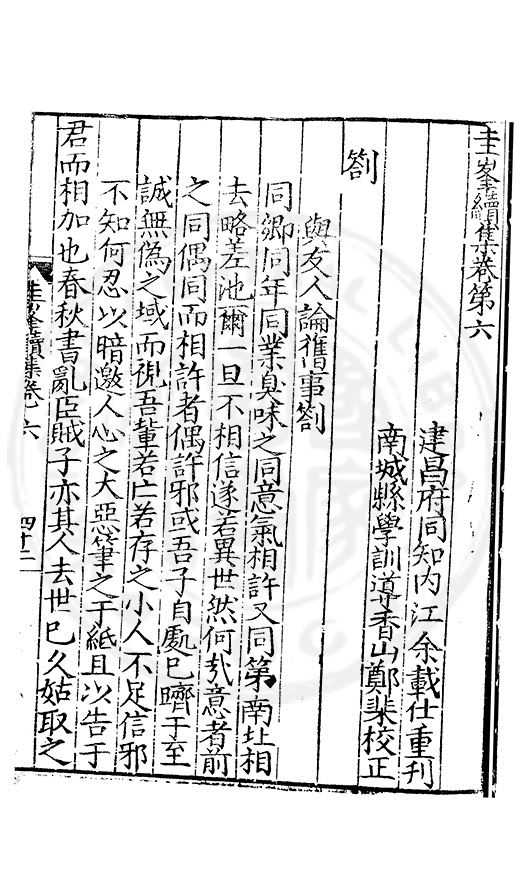 圭峯續集卷第六
建昌府同知內江余載仕重刊
南城縣學訓導香山鄭㭍校正
劄
與友人論舊事劄
同鄉同年同業臭味之同意氣相許又同第南北相
去略差池爾一旦不相信遂若異世然何哉意者前
之同偶同而相許者偶許邪或吾子自處已躋于至
誠無偽之域而視吾輩若亡若存之小人不足信邪
不知何忍以暗邀人心之大惡筆之于紙且以告于
君而相加也春秋書亂臣賊子亦其人去世已久姑取之
圭峯續集卷六
四十二